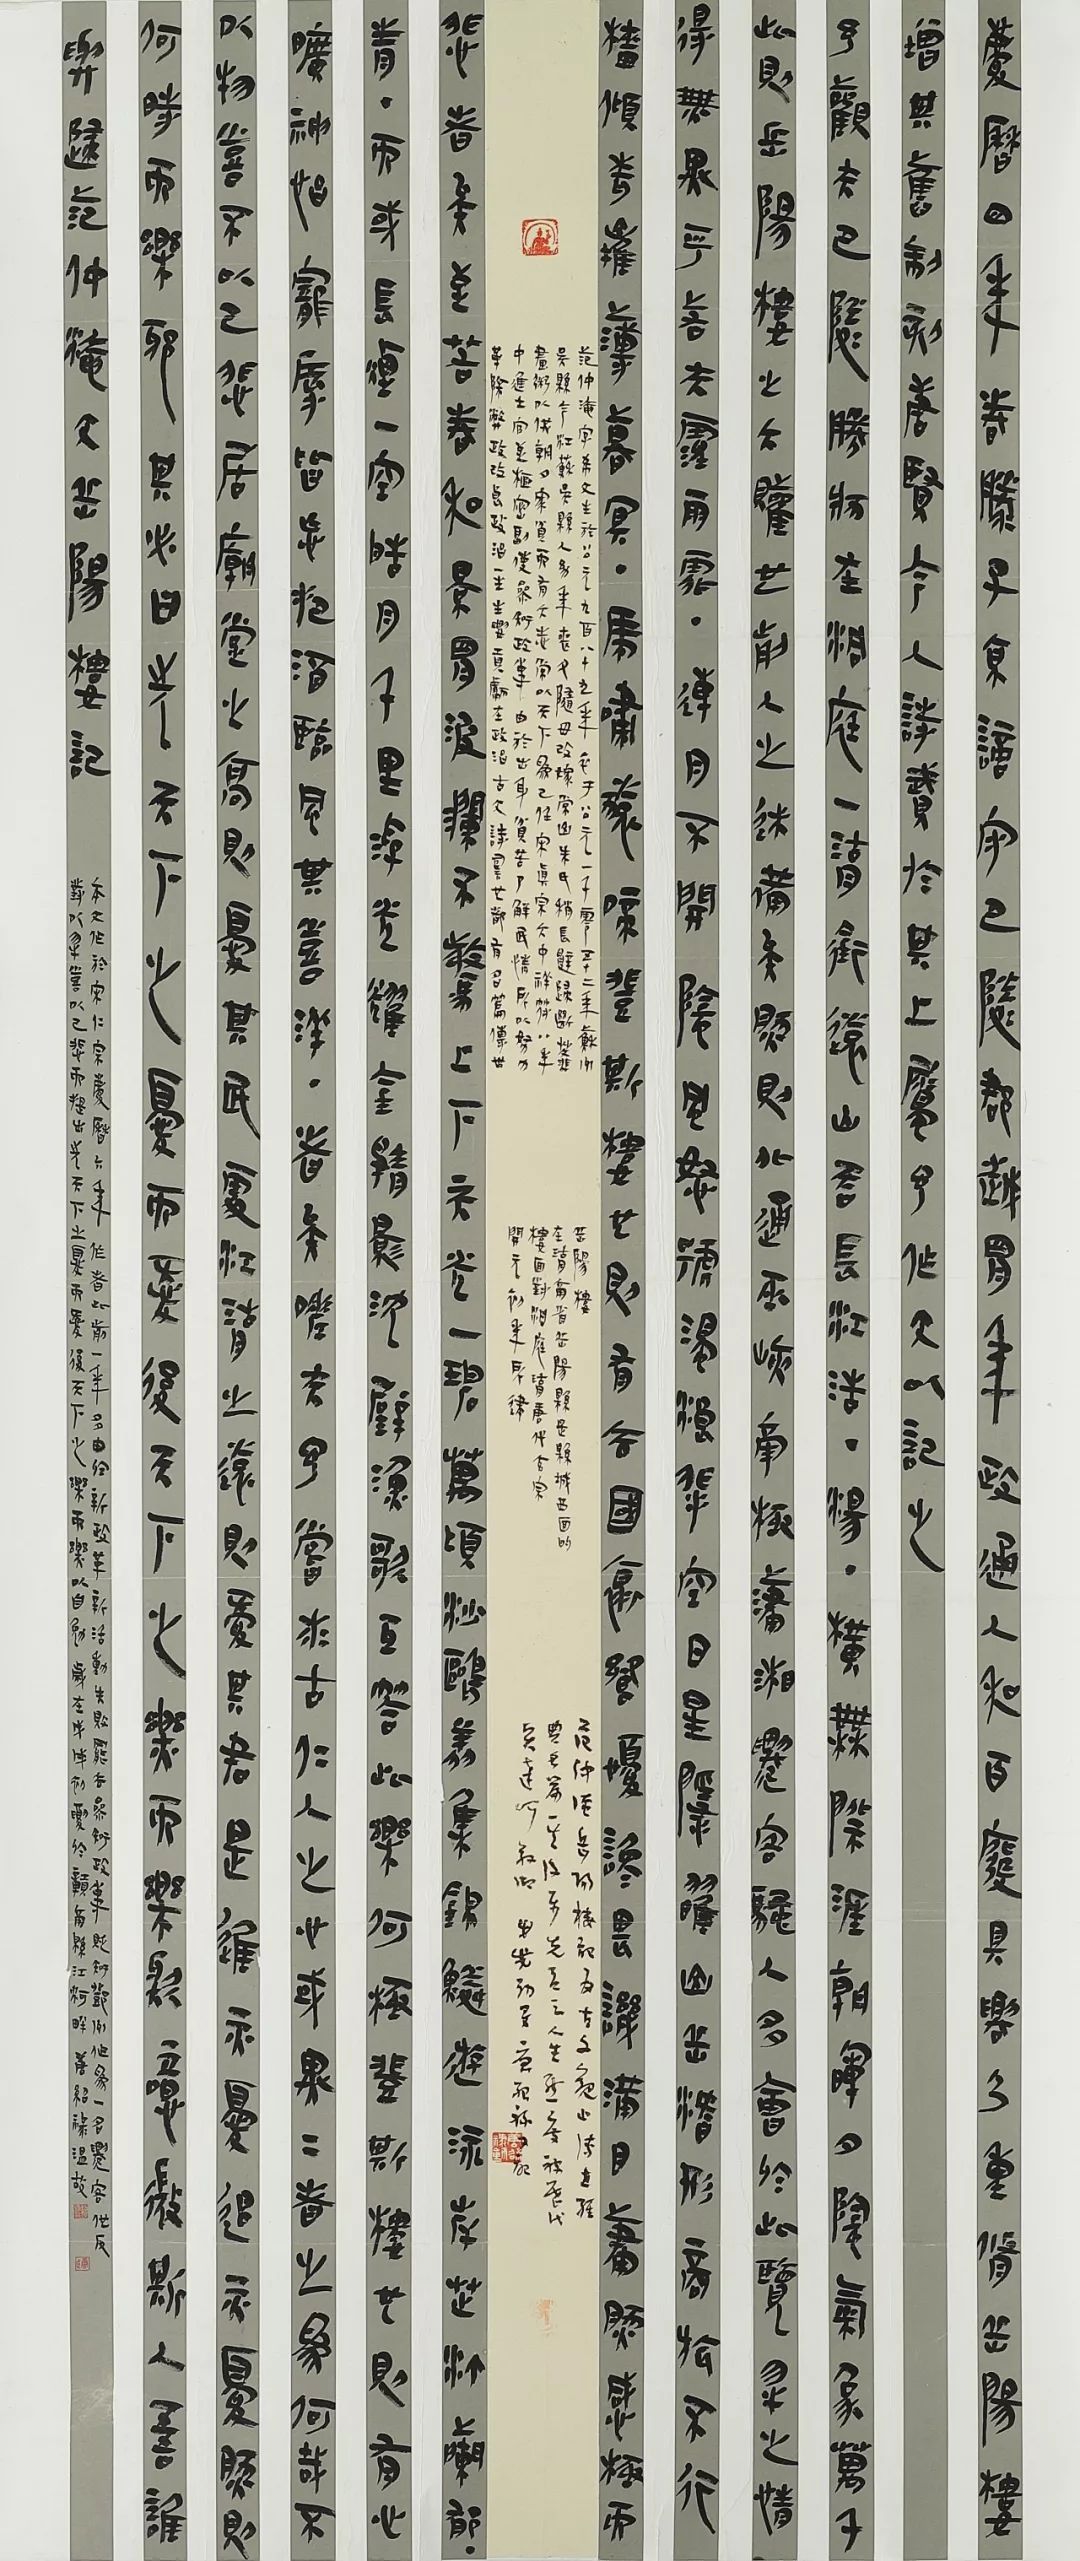 慶曆四年春滕子京謫守巴陵郡越明年政通人和百廢具興乃重脩岳陽樓
增其舊制刻唐賢今人詩賦於其上屬予作文以記之
予觀夫巴陵勝狀在洞庭一湖銜遠山吞長江浩·湯·橫無際涯朝暉夕陰氣象萬千
此則岳陽樓之大觀也前人之述備矣然則北通巫峽南極瀟湘遷客騷人多會於此覽物之情
得無異乎若夫霪雨霏·連月不開陰風怒號濁浪排空日星隱曜山岳潛形商旅不行
檣傾楫摧薄暮冥·虎嘯猿啼登斯樓也則有去國懷鄉憂讒畏譏滿目蕭然感極而
范仲淹字希文生於公元九百八十九年卒于公元一千零五十二年蘇州
吳縣今江蘇吳縣人幼年喪父隨母改嫁常山朱氏稍長辭歸斷虀
畫粥以供朝夕家貧而有大志常以天下為己任宋真宗大中祥符八年
中進士官至樞密副使參知政事由於出身貧苦了解民情所以努力
革除弊政改良政治一生主要貢獻在政治古文詩詞也都有名篇傳世
岳陽樓
在湖南省岳陽縣是縣城西面的
樓面對洞庭湖唐代玄宗
開元初年所建
范仲淹岳陽樓記為古文觀止
悲者矣至若春和景明波瀾不驚上下天光一碧萬頃沙鷗翔集錦鱗遊泳岸芷汀蘭郁·
青·而或長煙一空皓月千里浮光耀金靜影沉璧漁歌互答此樂何極登斯樓也則有心
曠神怡寵辱皆忘把酒臨風其喜洋·者矣嗟夫予嘗求古仁人之心或異二者之為何哉不
以物喜不以己悲居廟堂之高則憂其民處江湖之遠則憂其君是進亦憂退亦憂然則
何時而樂耶其必曰先天下之憂而憂後天下之樂而樂歟噫微斯人吾誰
與歸范仲淹文岳陽樓記
本文作於宋仁宗慶曆六年作者此前一年多由於新政革新活動失敗罷去參知政事貶知鄧州他為一名遷客他反
對以物喜以己悲而提出先天下之憂而憂後天下之樂而樂以自勉歲在戊戌初夏於贛南縣江河畔